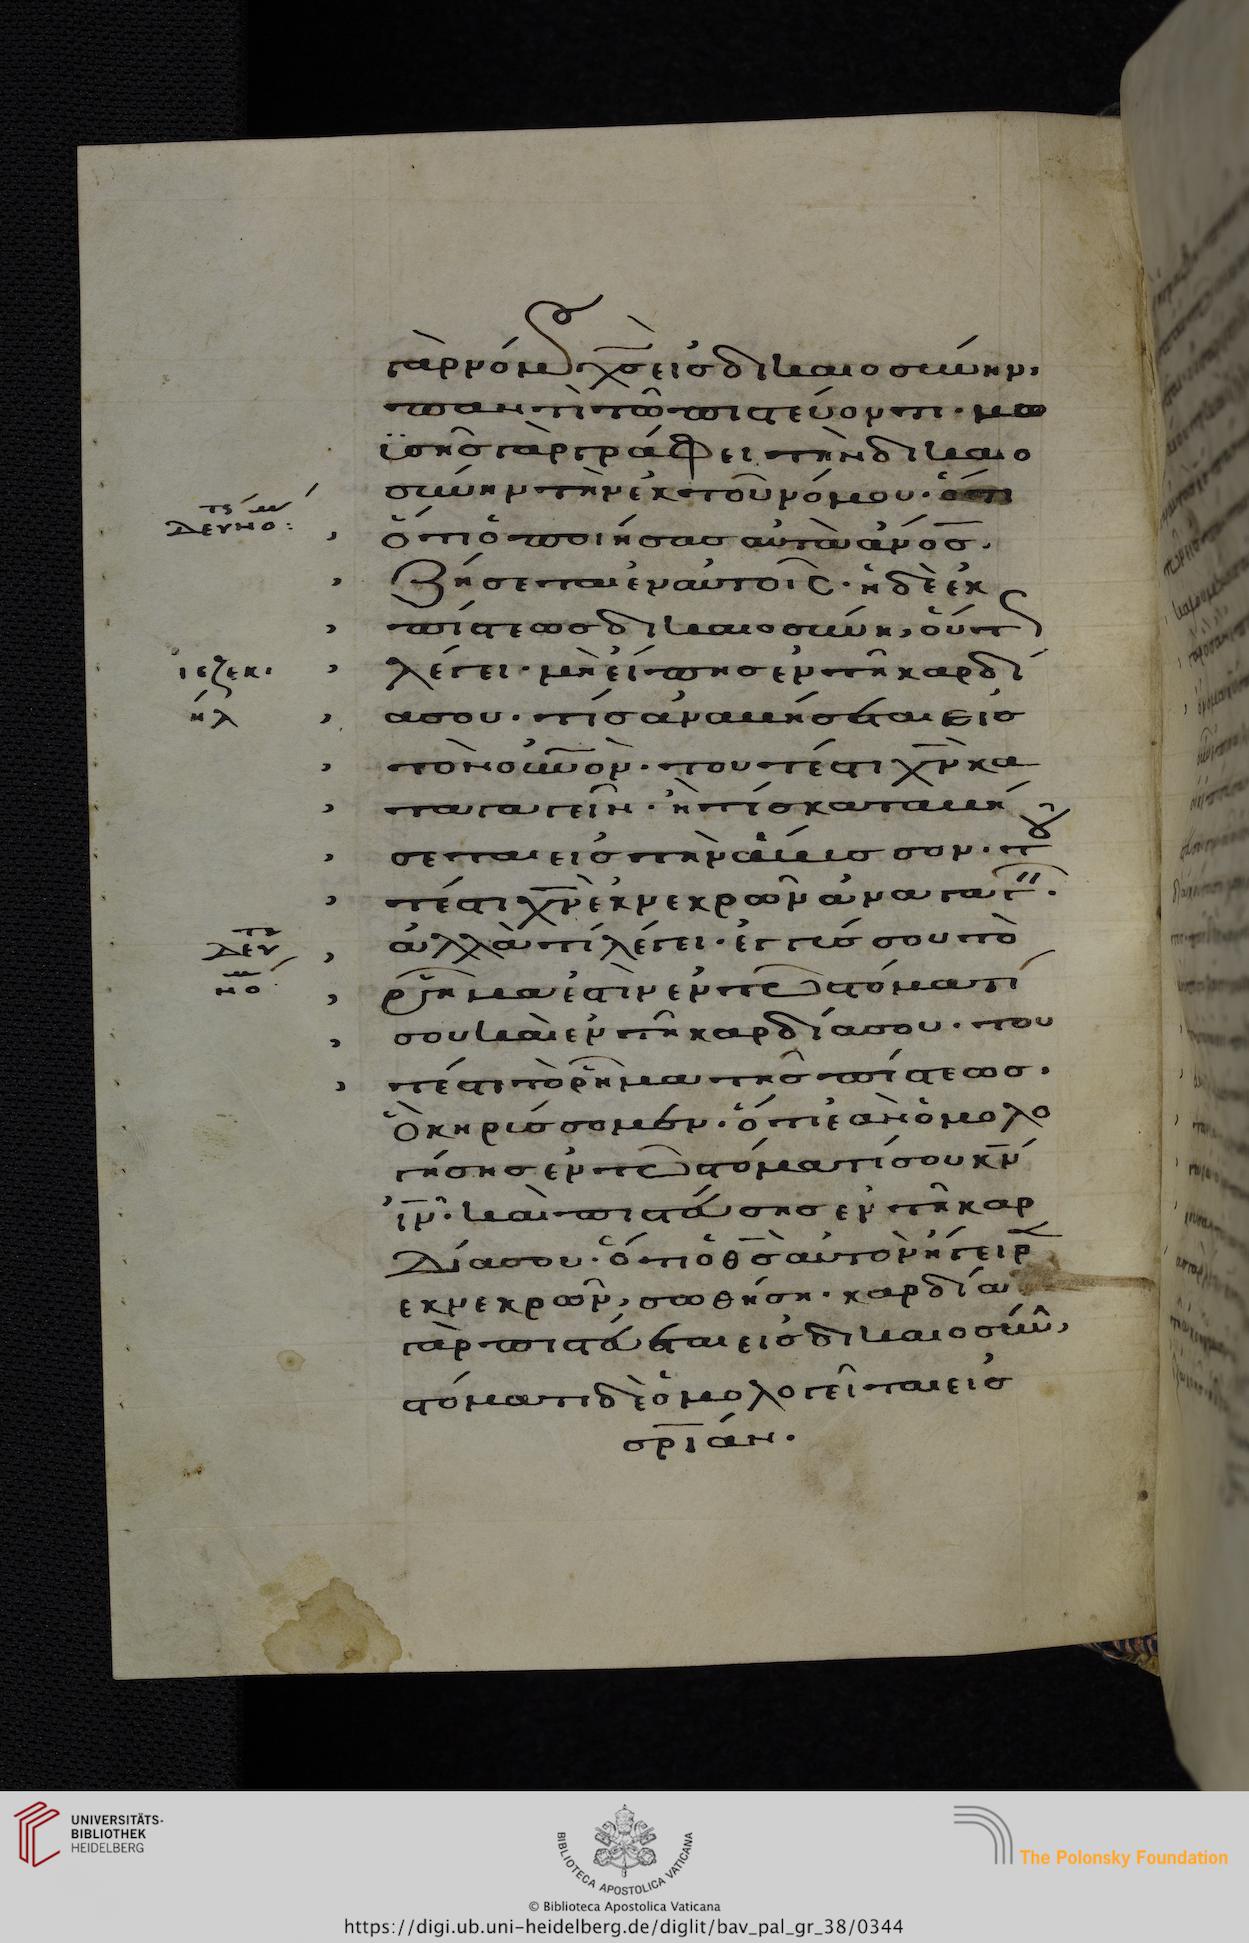 γὰρ νόμου χς̅ εἰς δικαιοσύνην,
παντὶ τῶ πιστεύοντι · μω
ϋσῆς γὰρ γράφει τὴν δικαιο
σύνην τὴν ἐκ τοῦ νόμου ·
τς μ
δευνο:
ὅτι ὁ ποιήσας αὐτὰ ἀν̅ος ·
ζήσεται ἐν αὐτοῖς · ἡ δὲ ἐκ
πίστεως δικαιοσύνη, οὕτ
ιεζεκι
ήλ
λέγει · μὴ εἴπης ἐν τῆ καρδί
α σου · τίς ἀναβήσεται εἰς
τὸν οὐν̅όν · τουτέστι χν̅ κα
ταγαγεῖν · ἢ τίς καταβή
σεται εἰς τὴν ἄβυσσον · τ
τέστι χν̅ ἐκ νεκρῶν ἀναγαγ ·
τυ
δευ
νο
ἀλλὰ τί λέγει · ἐγγύς σου τὸ
ῥῆμα ἐστὶν ἐν τῶ στόματί
σου καὶ ἐν τῆ καρδία σου · του
τέστι τὸ ῥῆμα τῆς πίστεως ·
ὃ κηρύσσομεν · ὅτι ἐὰν ὁμολο
γήσης ἐν τῶ στόματί σου κν̅
ιν̅ · καὶ πιστεύσης ἐν τῆ καρ
δία σου · ὅτι ὁ θς̅ αὐτὸν ἤγειρ
ἐκ νεκρῶν, σωθήση · καρδία
γὰρ πιστεύεται εἰς δικαιοσύν,
στόματι δὲ ὁμολογεῖται εἰς
σρ̅ίαν ·
UNIVERSITÄTS-
BIBLIOTHEK
HEIDELBERG
BIBLIOTECA APOSTOLICA VATICANA
The Polonsky Foundation
© Biblioteca Apostolica Vaticana
https://digi.ub.uni-heidelberg.de/diglit/bav_pal_gr_38/0344